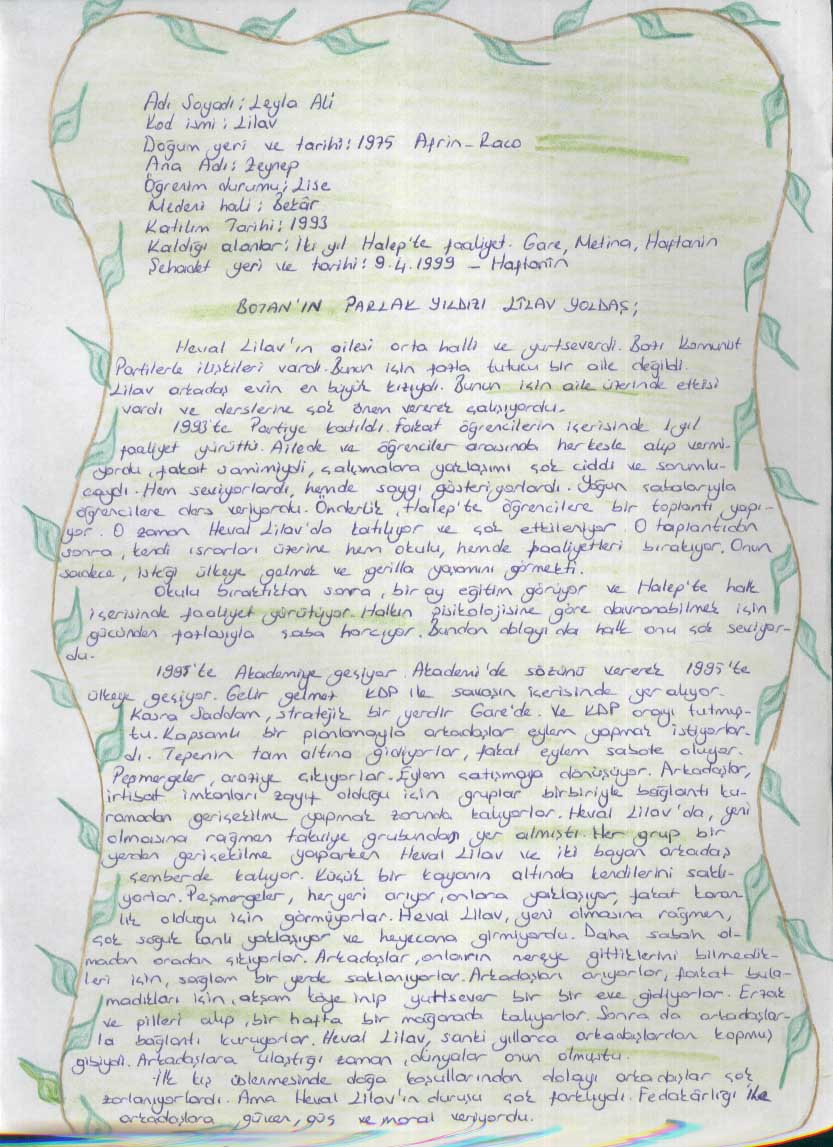 Adı Soyadı: Leyla Ali
Kod ismi: Lilav
Doğum yeri ve tarihi: 1975 Afrin-Raco
Ana Adı: Zeynep
Öğrenim durumu; Lise
Medeni hali: Bekâr
Katılım Tarihi: 1993
Kaldığı alanlar: İki yıl Halep'te faaliyet. Gare, Metina, Haftanin
Şehadet yeri ve tarihi: 9.4.1999 – Haftanin
BOTAN'IN PARLAK YILDIZI LİLAV YOLDAŞ;
Heval Lilav'ın ailesi orta halli ve yurtseverdi. Bazı Komünist
Partilerle ilişkileri vardı. Bunun için fazla tutucu bir aile değildi.
Lilav arkadaş evin en büyük kızıydı. Bunun için aile üzerinde etkisi
vardı ve derslerine çok önem vererek çalışıyordu.
1993'te Partiye katıldı. Fakat öğrencilerin içerisinde 1 yıl
faaliyet yürüttü. Ailede ve öğrenciler arasında herkesle alıp vermi-
yordu, fakat samimiydi, çalışmalara yaklaşımı çok ciddi ve sorumlu-
caydı. Hem seviyorlardı, hemde saygı gösteriyorlardı. Yoğun çabalarıyla
öğrencilere ders veriyordu. Önderlik, Halep'te öğrencilere bir toplantı yapı-
yor. O zaman Heval Lilav'da katılıyor ve çok etkileniyor. O toplantıdan
sonra, kendi ısrarları üzerine hem okulu, hemde faaliyetleri bırakıyor. Onun
sadece, isteği ülkeye gelmek ve gerilla yaşamını görmekti.
Okulu bıraktıktan sonra, bir ay eğitim görüyor ve Halep'te halk
içerisinde faaliyet yürütüyor. Halkın pisikolojisine göre davranabilmek için
gücünden fazlasıyla çaba harcıyor. Bundan dolayı da halk onu çok seviyor-
du.
Akademiye geçiyor. Akademi'de sözünü vererek 1995'te
ülkeye geçiyor. Gelir gelmez KDP ile savaşın içerisinde yer alıyor.
Kasra Saddam, stratejik bir yerdir Gare'de. Ve KDP orayı tutmuş-
tu. Kapsamlı bir planlamayla arkadaşlar eylem yapmak istiyorlar-
dı. Tepenin tam altına gidiyorlar, fakat eylem sabote oluyor.
Peşmergeler, araziye çıkıyorlar. Eylem çatışmaya dönüşüyor. Arkadaşlar,
irtibat imkanları zayıf olduğu için gruplar birbiriyle bağlantı ku-
ramadan geriçekilme yapmak zorunda kalıyorlar. Heval Lilav'da, yeni
olmasına rağmen takviye grubundan yer almıştı. Her grup bir
yerden geriçekilme yaparken Heval Lilav ve iki bayan arkadaş
çemberde kalıyor. Küçük bir kayanın altında kendilerini saklı-
yorlar. Peşmergeler, heryeri arıyor, onlara yaklaşıyor, fakat karan-
lık olduğu için görmüyorlar. Heval Lilav, yeni olmasına rağmen,
çok soğuk kanlı yaklaşıyor ve heyecana girmiyordu. Daha sabah ol-
madan oradan çıkıyorlar. Arkadaşlar, onların nereye gittiklerini bilmedik-
leri için, sağlam bir yerde saklanıyorlar. Arkadaşları arıyorlar, fakat bula-
madıkları için, akşam köye inip yurtsever bir bir eve gidiyorlar. Erzak
ve pilleri alıp, bir hafta bir mağarada kalıyorlar. Sonra da arkadaşlar-
la bağlantı kuruyorlar. Heval Lilav, sanki yıllarca arkadaşlardan kopmuş
gibiydi. Arkadaşlara ulaştığı zaman, dünyalar onun olmuştu.
İlk kış üslenmesinde doğa koşullarından dolayı arkadaşlar çok
zorlanıyorlardı. Ama Heval Lilav'ın duruşu çok farklıydı. Fedakârlığı ile
arkadaşlara güven, güç ve moral veriyordu.